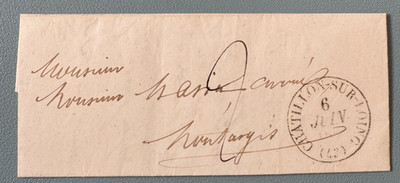 Monsieur
Monsieur
2
Montargis
CHATILLON-SUR-LOING
6
JUIN
(43)